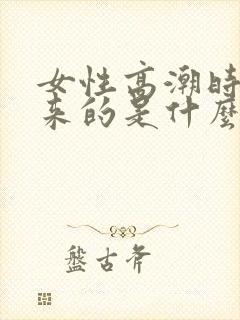 女性高潮時
来的是什麼
盤古斧